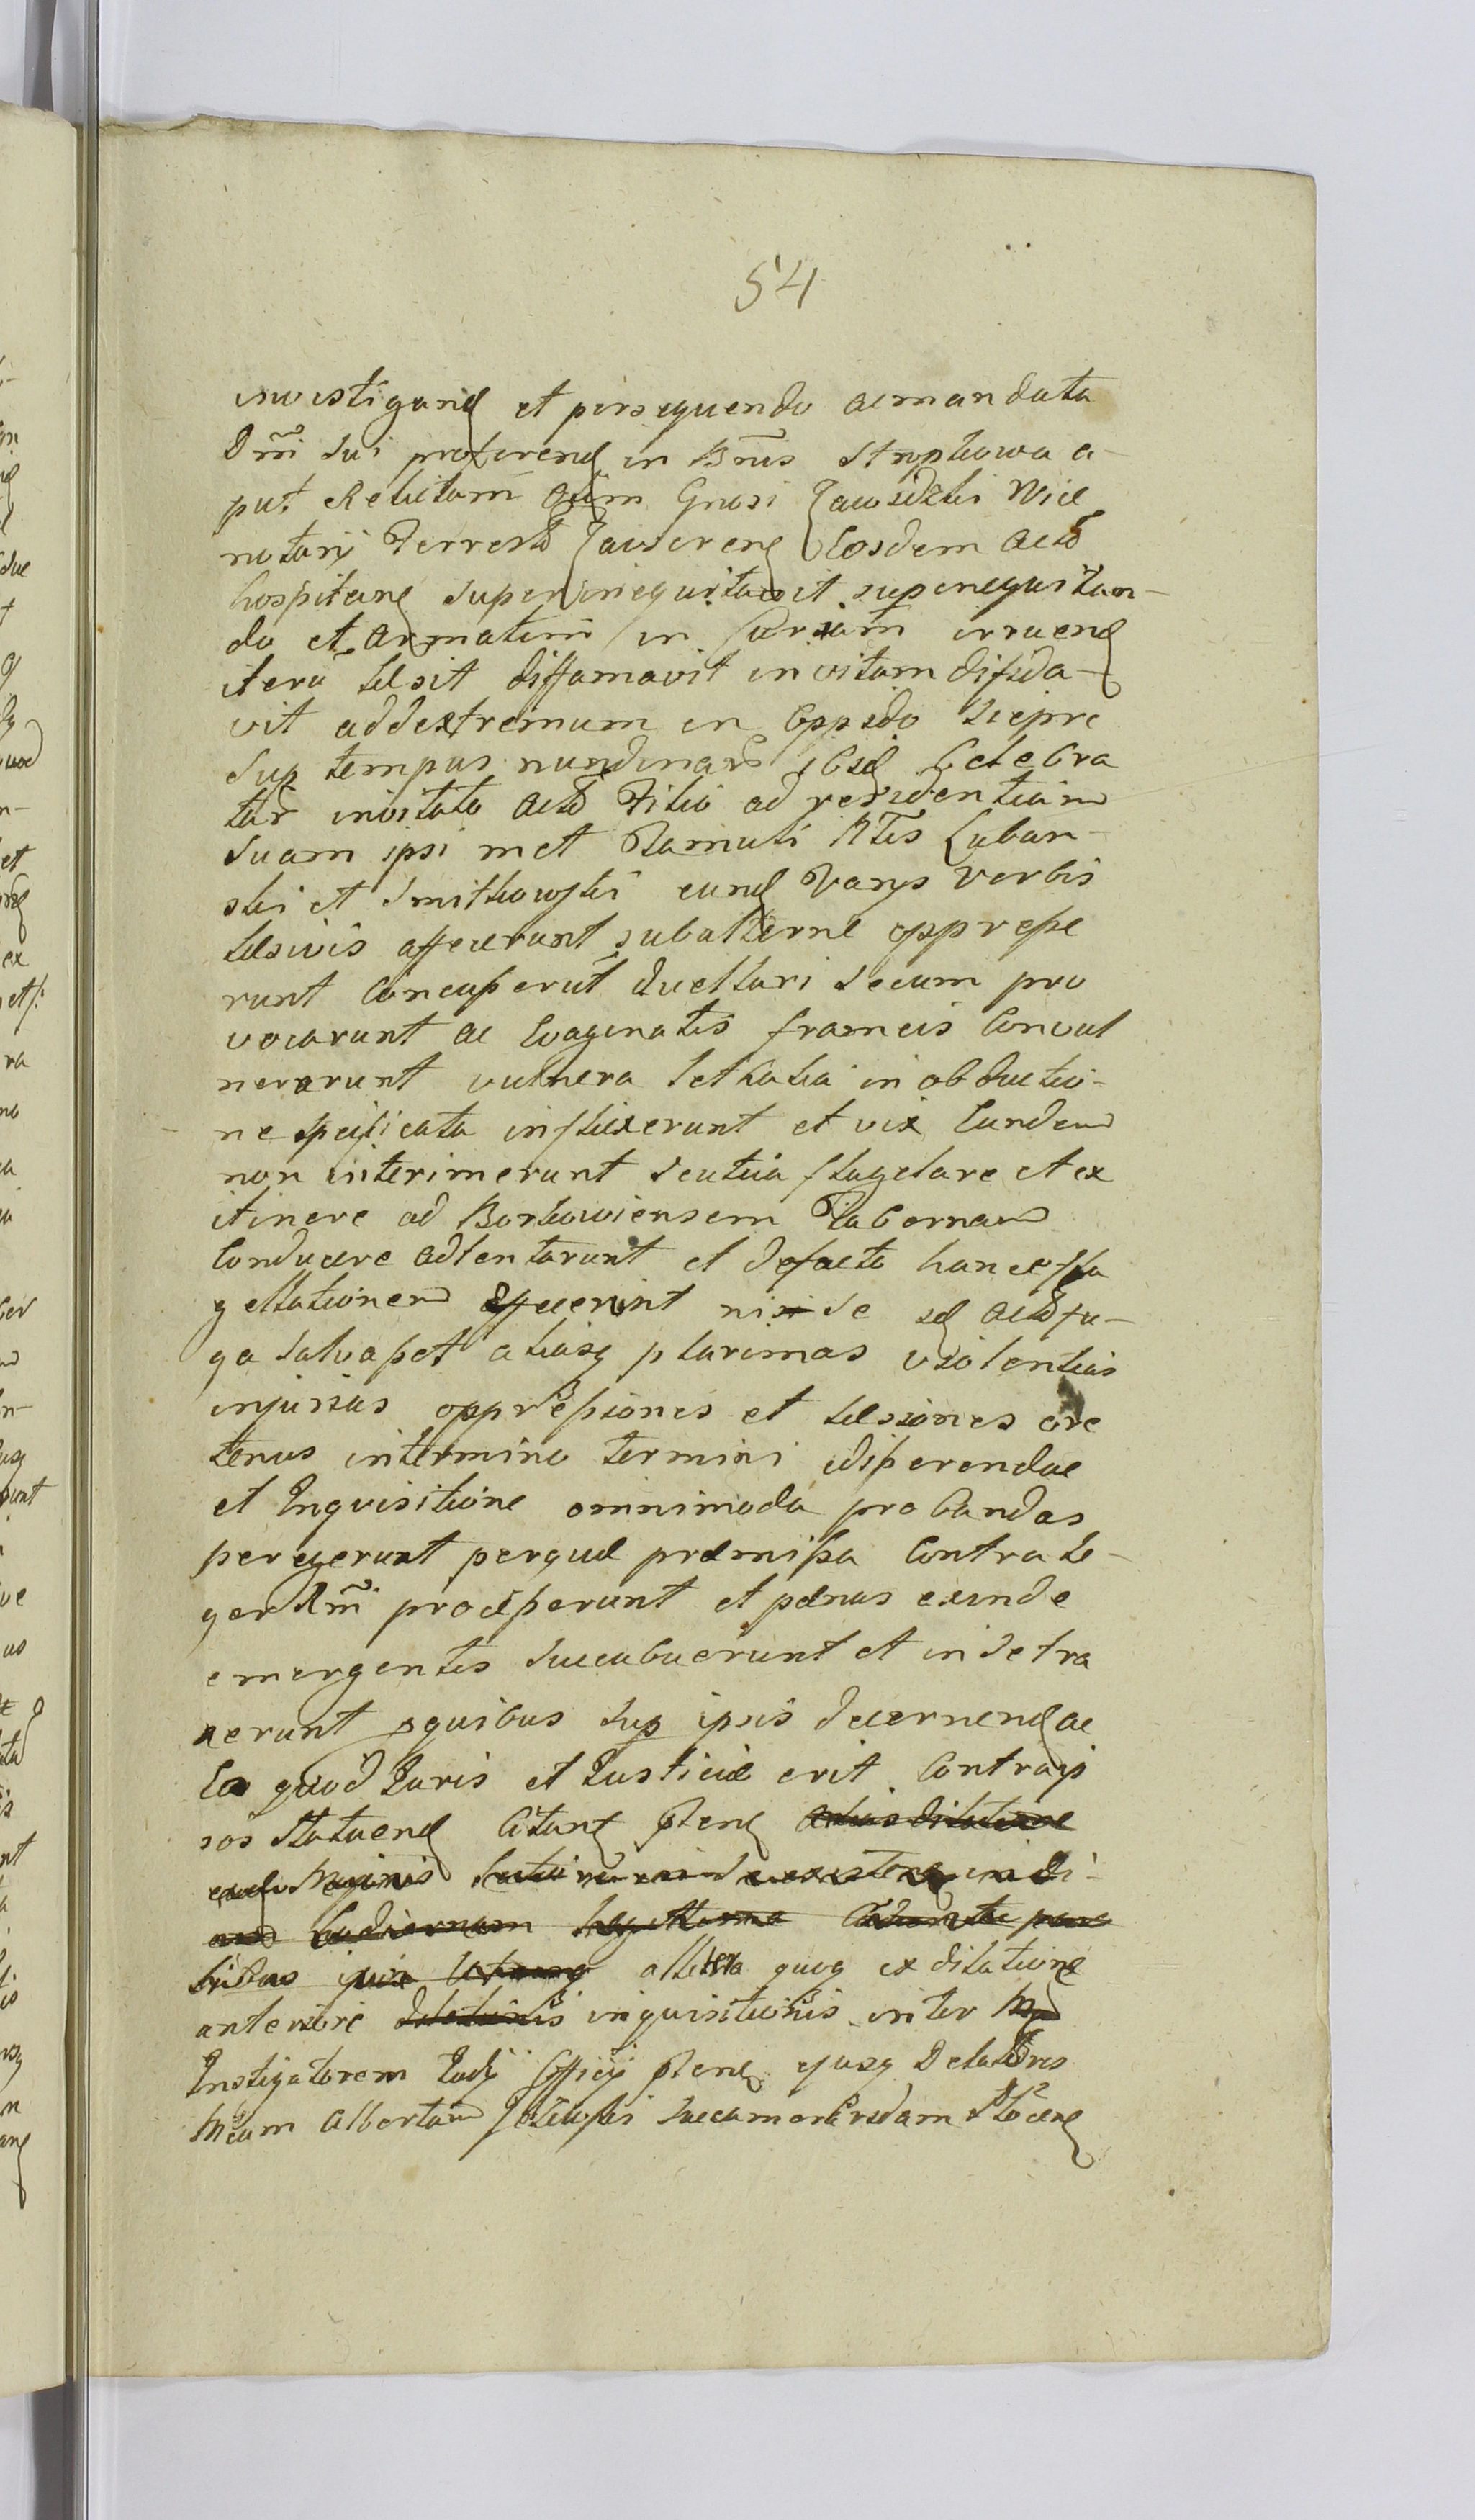 54
investigand et persequendo ac mandata
Dñi sui proferend in Bnis Strypkowa a-
put Relictam olim Grosi Zawidzki Vice
notarij Terrestr Zawseren Eosdem Acto
hospitand superinequitavit superequitan-
do et armatim in Curiam irruend
iteru læsit diffamavit in vitam difida-
vit ad extremum in Oppido Siepre
sup tempus nundinar ibid celebra
tar invitato Acto Filio ad residentiam
suam ipsi met Famuli Ntes Luban-
ski et Smitkowski eund varys verbis
læsivis affecerunt subalterne oppresse
runt concusserut duellari secum pro
vocarunt ac evaginatis frameis convul
nerarunt vulnera lethalia in obductio-
ne specificata inflixerunt et vix eundem
non interimerunt scutica flagelare et ex
itinere ad Borkowiensem Tabernam
conducere adtentarunt et defacto hanc fla
gellationem effecerint nisi se sd Acto fu-
ga salvasset aliasq plurimas violentias
injurias oppressiones et læsiones ore
tenus in termino termini edisserendæ
et Inquisitione omnimoda probandas
peregerunt perque præmissa contra le-
ger Rm processerunt et pænas exinde
emergentes succubuerunt et indetra
xerunt pquibus sup ipsis decernend ac
Ea quod Juris et Justiciæ erit Contra ip
sos statuend Citant
altera quoq ex dilatione
anteriore inquisitionis inter
Instigatorem Judij Officij ejusq Delatores
Mcum Albertum